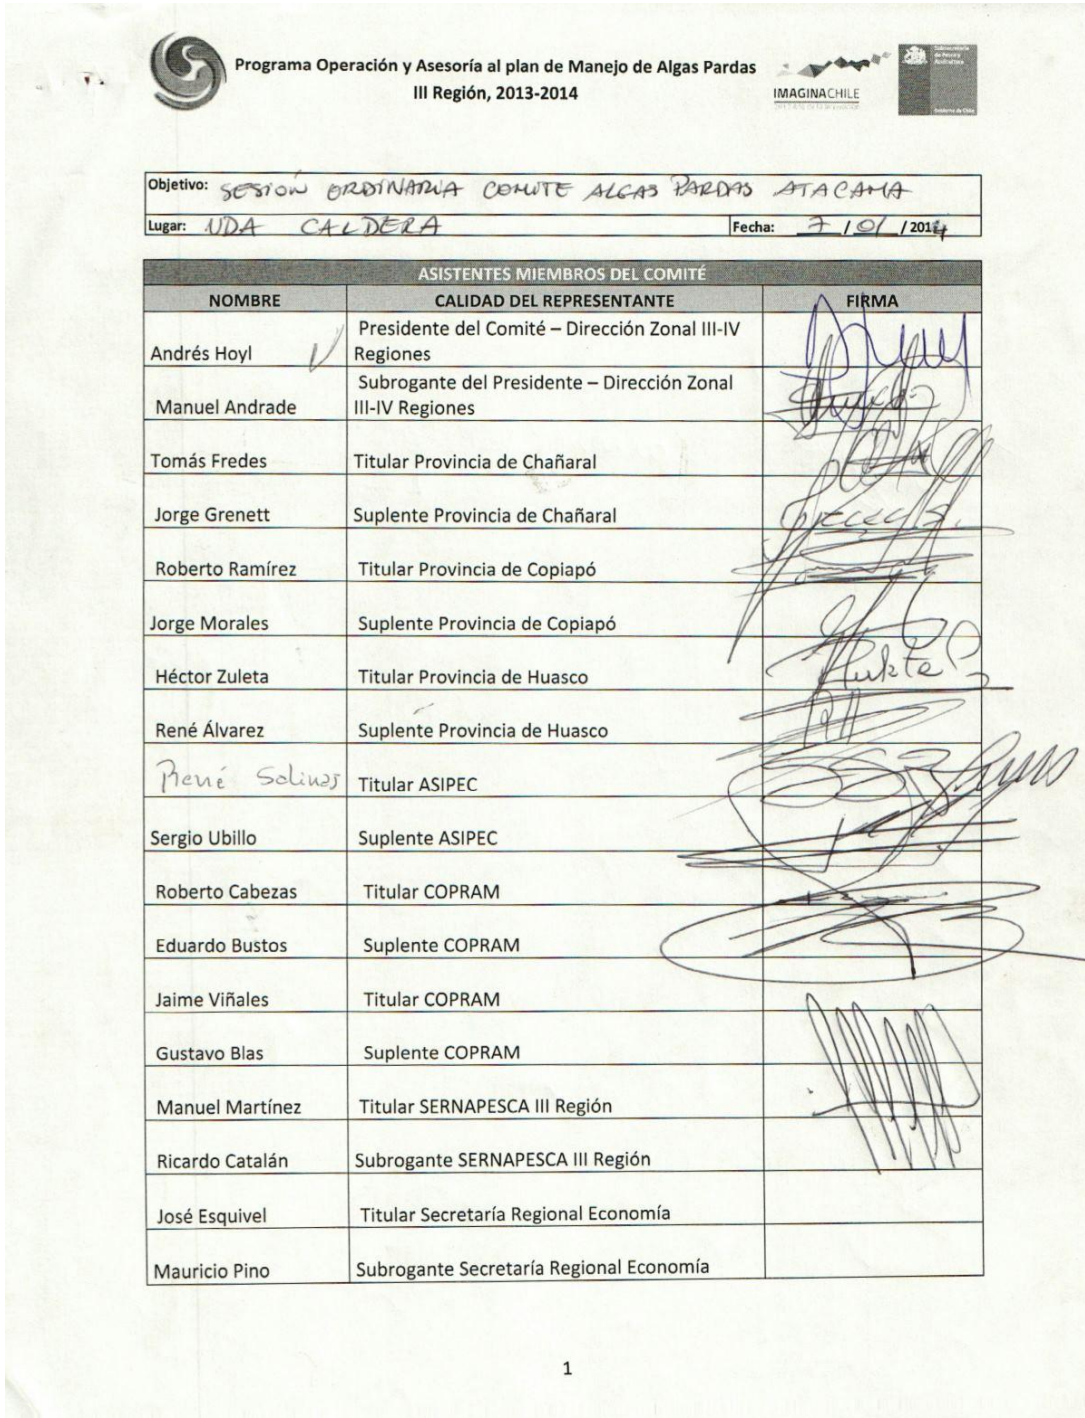 Programa Operación y Asesoría al plan de Manejo de Algas Pardas
III Región, 2013-2014
IMAGINACHILE
Subsecretaría
de Pesca y
Acuicultura
Gobierno de Chile
Objetivo: SESIÓN ORDINARIA COMITE ALGAS PARDAS ATACAMA
Lugar: UDA CALDERA Fecha: 7 / 01 / 2014
ASISTENTES MIEMBROS DEL COMITÉ
NOMBRE CALIDAD DEL REPRESENTANTE FIRMA
Presidente del Comité – Dirección Zonal III-IV
Andrés Hoyl Regiones
Subrogante del Presidente – Dirección Zonal
Manuel Andrade III-IV Regiones
Tomás Fredes Titular Provincia de Chañaral
Jorge Grenett Suplente Provincia de Chañaral
Roberto Ramírez Titular Provincia de Copiapó
Jorge Morales Suplente Provincia de Copiapó
Héctor Zuleta Titular Provincia de Huasco
René Álvarez Suplente Provincia de Huasco
René Salinas Titular ASIPEC
Sergio Ubillo Suplente ASIPEC
Roberto Cabezas Titular COPRAM
Eduardo Bustos Suplente COPRAM
Jaime Viñales Titular COPRAM
Gustavo Blas Suplente COPRAM
Manuel Martínez Titular SERNAPESCA III Región
Ricardo Catalán Subrogante SERNAPESCA III Región
José Esquivel Titular Secretaría Regional Economía
Mauricio Pino Subrogante Secretaría Regional Economía
1